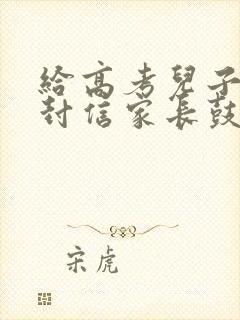 給高考兒子
封信家長鼓
宋虎